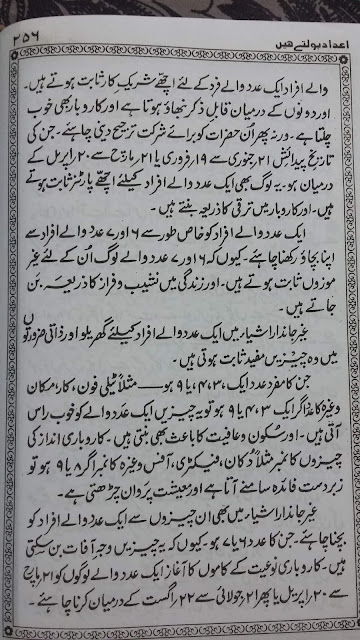 ۲۵۶
اعداد بولتے ھیں
والے افراد ایک عدد والے فرد کے لئے اچھے شریکِ کار ثابت ہوتے ہیں۔
اور دونوں کے درمیان قابلِ ذکر نبھاؤ ہوتا ہے اور کاروبار بھی خوب
چلتا ہے۔ ورنہ پھر اُن حضرات کو برائے شرکت ترجیح دینی چاہئے۔ جن کی
تاریخِ پیدائش ۲۱ جنوری سے ۱۹ فروری یا ۲۱ مارچ سے ۲۰ اپریل کے
درمیان ہو۔ یہ لوگ بھی ایک عدد والے افراد کیلئے اچھے پارٹنر ثابت ہوتے
ہیں۔ اور کاروبار میں ترقی کا ذریعہ بنتے ہیں۔
ایک عدد والے افراد کو خاص طور سے ۶ اور ۷ عدد والے افراد سے
اپنا بچاؤ رکھنا چاہئے۔ کیوں کہ ۶ اور ۷ عدد والے لوگ اُن کے لئے غیر
موزوں ثابت ہوتے ہیں۔ اور زندگی میں نشیب و فراز کا ذریعہ بن
جاتے ہیں۔
غیر جاندار اشیار میں ایک عدد والے افراد کیلئے گھریلو اور ذاتی ضرورتوں
میں وہ چیزیں مفید ثابت ہوتی ہیں۔
جن کا مفرد عدد ایک، ۳، ۴، یا ۹ ہو۔ مثلاً ٹیلی فون، کار، مکان
وغیرہ کا عدد اگر ایک ۳، ۴ یا ۹ ہو تو یہ چیزیں ایک عدد والے کو خوب راس
آتی ہیں۔ اور سکون و عافیت کا باعث بھی بنتی ہیں۔ کاروباری انداز کی
چیزوں کا نمبر مثلاً دُکان، فیکٹری، آفس وغیرہ کا نمبر اگر ۸ یا ۹ ہو تو
زبردست فائدہ سامنے آتا ہے اور معیشت پروان چڑھتی ہے۔
غیر جاندار اشیار میں بھی اِن چیزوں سے ایک عدد والے افراد کو
بچنا چاہئے۔ جن کا عدد ۶ یا ۷ ہو۔ کیوں کہ یہ چیزیں وجہِ آفات بن سکتی
ہیں۔ کاروباری نوعیت کے کاموں کا آغاز ایک عدد والے لوگوں کو ۲۱ مارچ
سے ۲۰ اپریل یا پھر ۲۱ جولائی سے ۲۲ اگست کے درمیان کرنا چاہئے۔